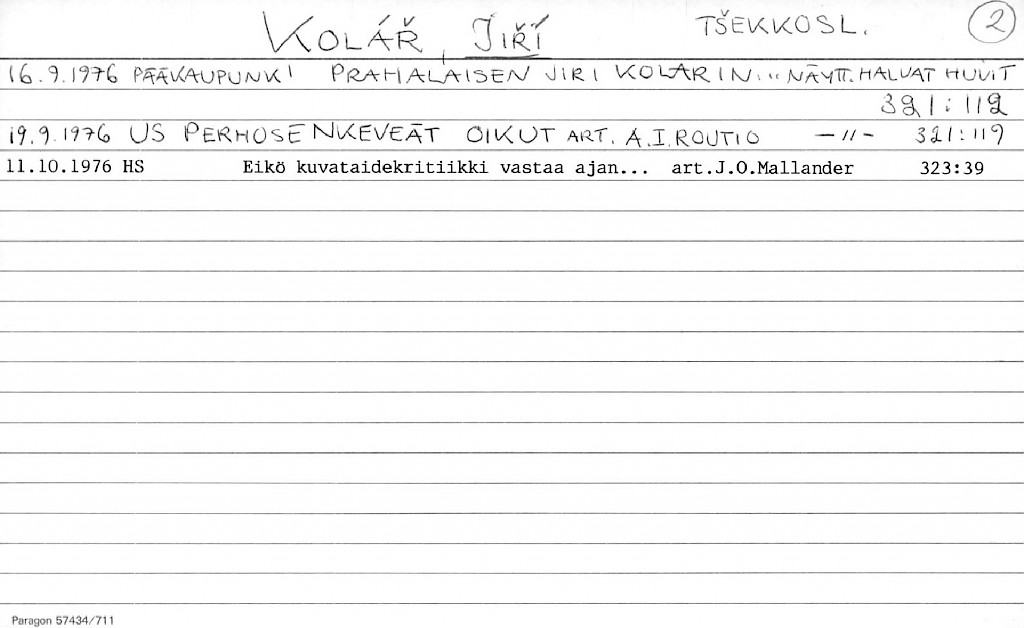 KOLÁŘ, JIŘÍ TŠEKKOSL. 2
16.9.1976 PÄÄKAUPUNKI PRAHALAISEN JIRI KOLARIN... NÄYTT. HALVAT HUVIT
321:112
19.9.1976 US PERHOSENKEVEÄT OIKUT ART. A.I.ROUTIO —"— 321:119
11.10.1976 HS Eikö kuvataidekritiikki vastaa ajan... art.J.O.Mallander 323:39
Paragon 57434/711